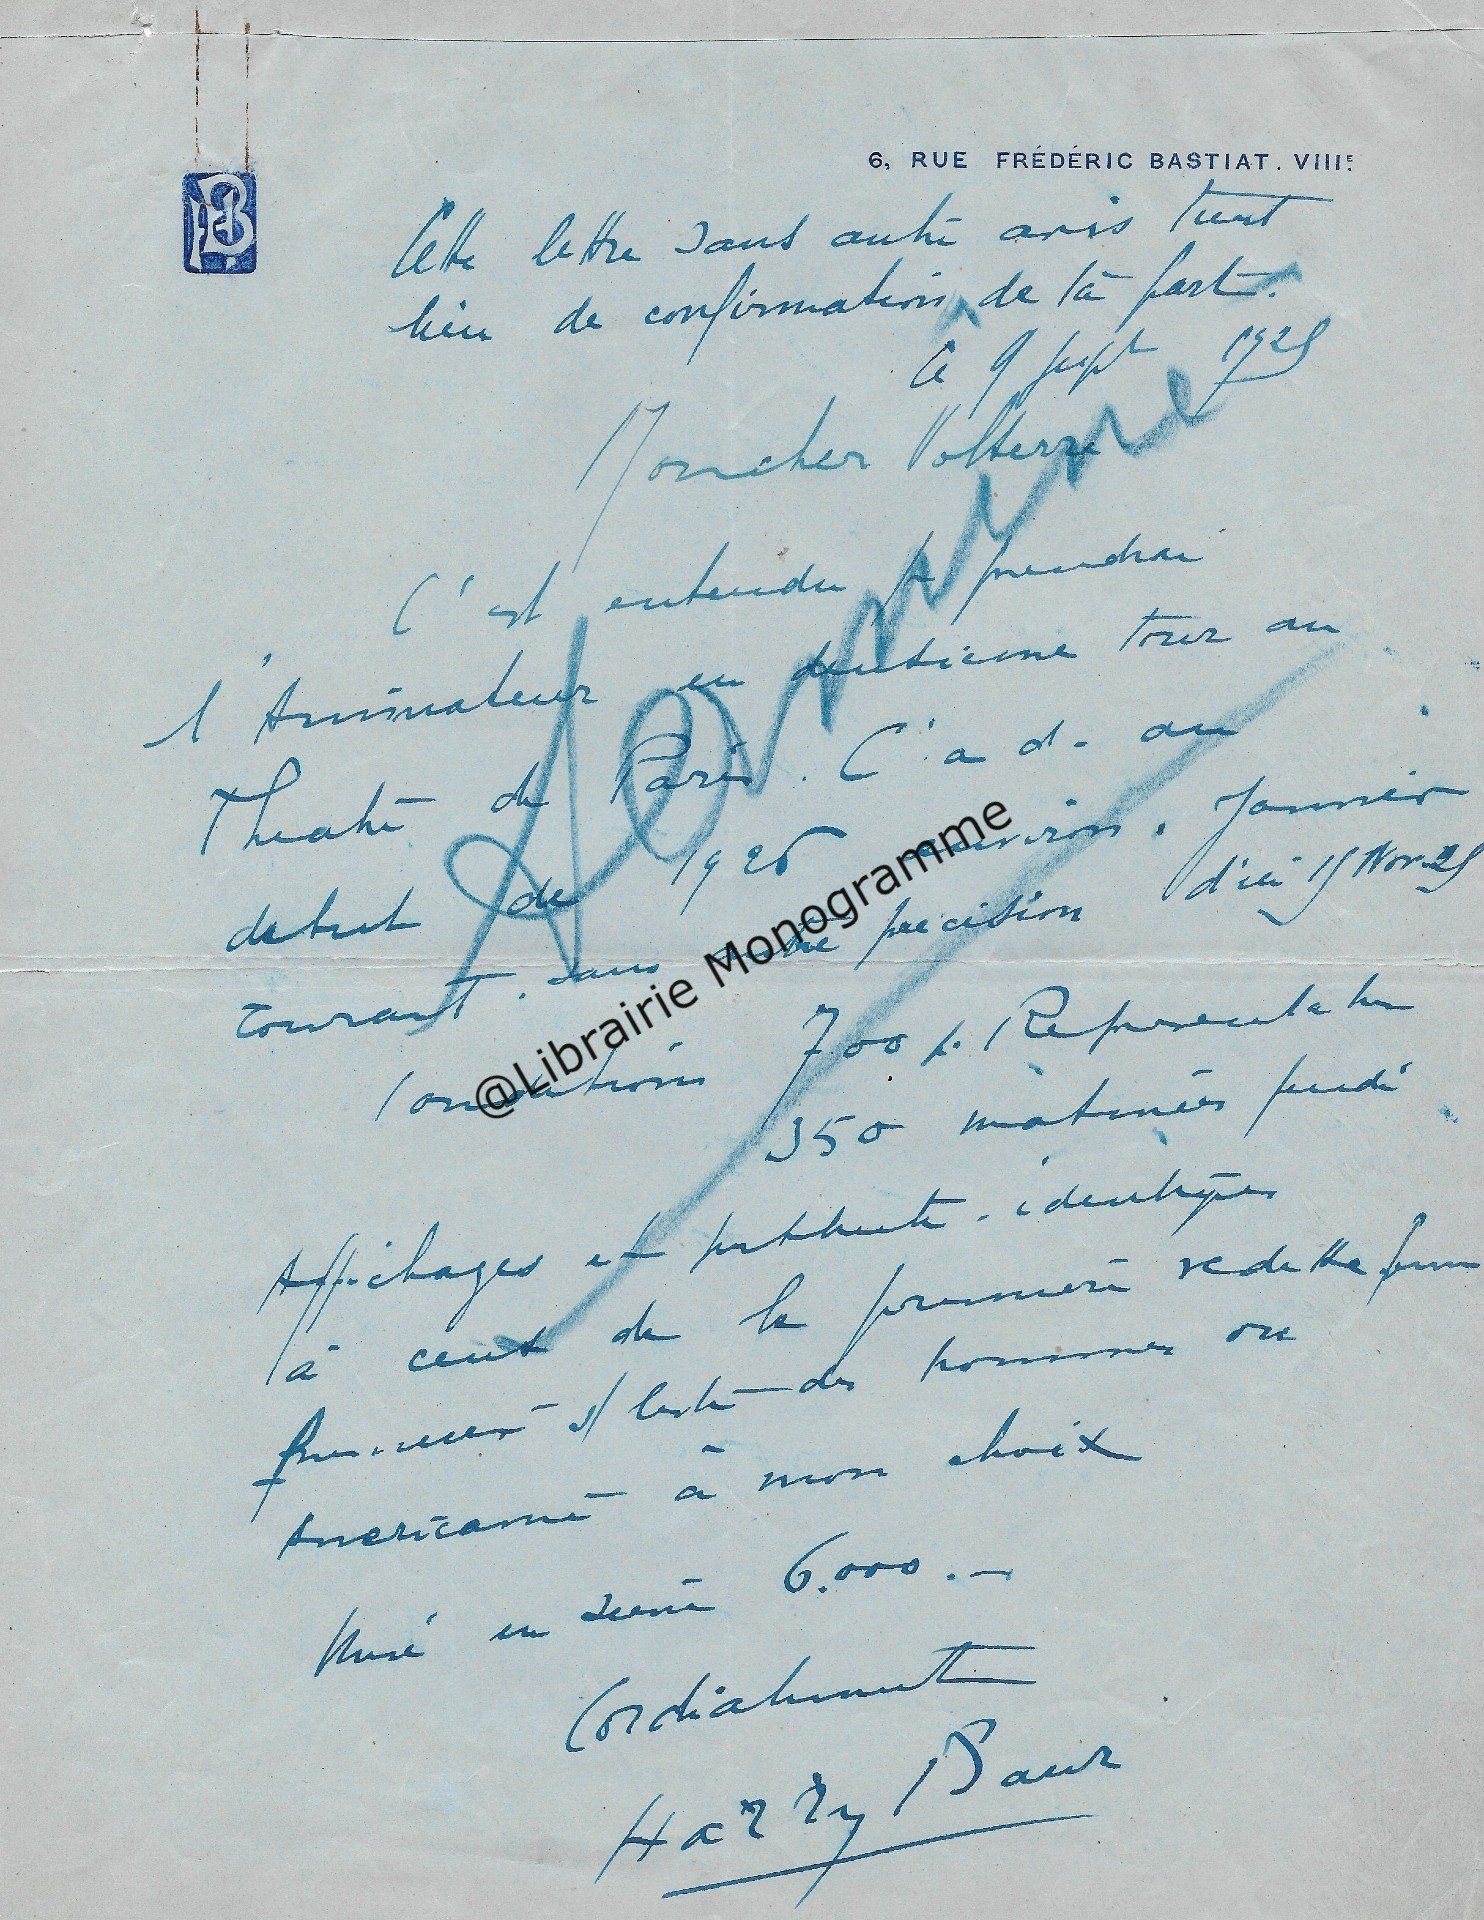 6, RUE FRÉDÉRIC BASTIAT. VIIIE
HB
Cette lettre sans autre avis tient
lieu de confirmation de ta part.
Ce 9 sept 1925
Mon cher Volterra
C'est entendu je prendrai
l'Animateur en deuxième tour au
Théatre de Paris. C.a d. au
debut de 1926 environ. Janvier
courant. sans autre précision d'ici 15 Nov. 25
Conditions 700 p. Representation
350 matinées jeudi
Affichages et publicité. identiques
à ceux de la première vedette femme
première s/ liste des hommes ou
Americaine à mon choix
mise en scene 6.000.-
Cordialement
Harry Baur
@Librairie Monogramme